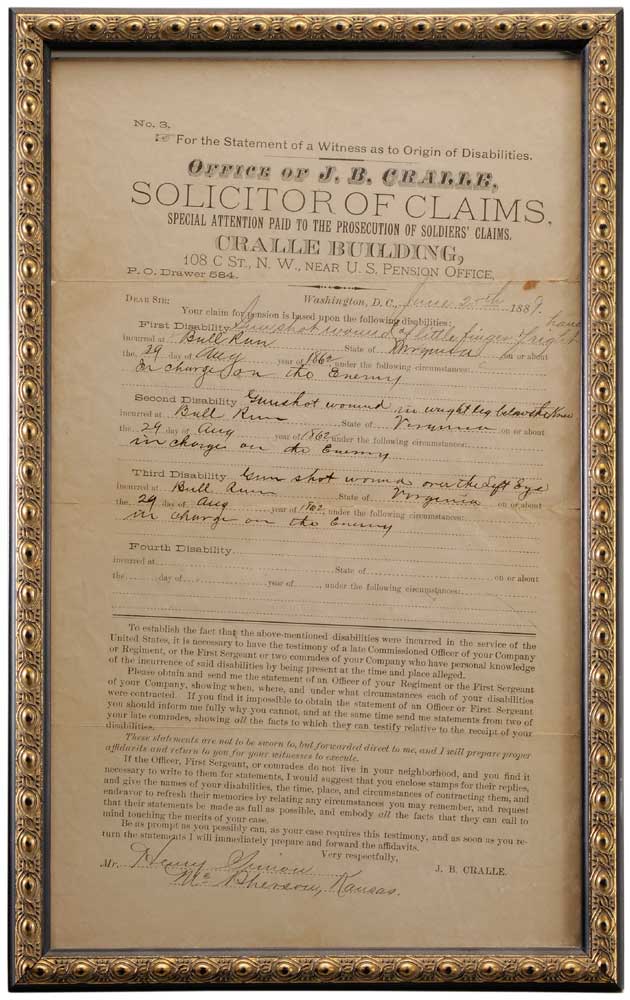 No. 3,
☞ For the Statement of a Witness as to Origin of Disabilities.
OFFICE OF J. B. CRALLE,
SOLICITOR OF CLAIMS,
SPECIAL ATTENTION PAID TO THE PROSECUTION OF SOLDIERS' CLAIMS.
CRALLE BUILDING,
108 C ST., N. W., NEAR U. S. PENSION OFFICE,
P. O. Drawer 584.
Washington, D. C., June 20th 1889.
DEAR SIR:
Your claim for pension is based upon the following disabilities: hand
First Disability Gunshot wound of little finger right
incurred at Bull Run State of Virginia on or about
the 29 day of Aug year of 1862 under the following circumstances:
charge on the Enemy
Second Disability Gunshot wound in wright leg below the Knee
incurred at Bull Run State of Virginia on or about
the 29 day of Aug year of 1862 under the following circumstances:
in charge on the Enemy
Third Disability Gun shot wound over the Left Eye
incurred at Bull Run State of Virginia on or about
the 29 day of Aug year of 1862 under the following circumstances:
in charge on the Enemy
Fourth Disability
incurred at State of on or about
the day of year of under the following circumstances:
To establish the fact that the above-mentioned disabilities were incurred in the service of the
United States, it is necessary to have the testimony of a late Commissioned Officer of your Company
or Regiment, or the First Sergeant or two comrades of your Company who have personal knowledge
of the incurrence of said disabilities by being present at the time and place alleged.
Please obtain and send me the statement of an Officer of your Regiment or the First Sergeant
of your Company, showing when, where, and under what circumstances each of your disabilities
were contracted. If you find it impossible to obtain the statement of an Officer or First Sergeant
you should inform me fully why you cannot, and at the same time send me statements from two of
your late comrades, showing all the facts to which they can testify relative to the receipt of your
disabilities.
These statements are not to be sworn to, but forwarded direct to me, and I will prepare proper
affidavits and return to you for your witnesses to execute.
If the Officer, First Sergeant, or comrades do not live in your neighborhood, and you find it
necessary to write to them for statements, I would suggest that you enclose stamps for their replies,
and give the names of your disabilities, the time, place, and circumstances of contracting them, and
endeavor to refresh their memories by relating any circumstances you may remember, and request
that their statements be made as full as possible, and embody all the facts that they can call to
mind touching the merits of your case.
Be as prompt as you possibly can, as your case requires this testimony, and as soon as you re-
turn the statements I will immediately prepare and forward the affidavits.
Very respectfully,
J. B. CRALLE.
Mr. Henry Simon
McPherson, Kansas.